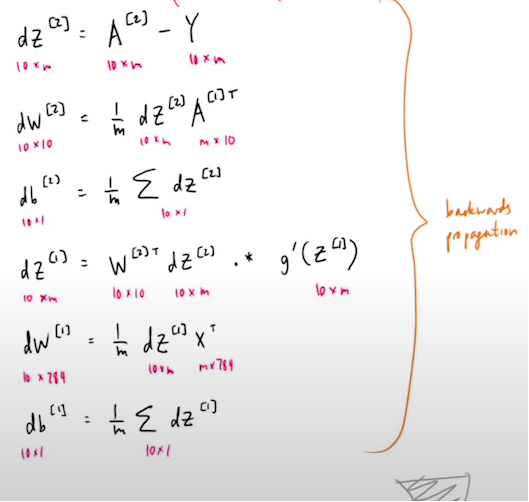 dZ^[2] = A^[2] - Y
10 x m 10 x m 10 x m
dW^[2] = 1/m dZ^[2] A^[1]T
10 x 10 10 x m m x 10
db^[2] = 1/m Σ dZ^[2]
10 x 1 10 x 1
dZ^[1] = W^[2]T dZ^[2] .* g'(Z^[1])
10 x m 10 x 10 10 x m 10 x m
dW^[1] = 1/m dZ^[1] X^T
10 x 784 10 x m m x 784
db^[1] = 1/m Σ dZ^[1]
10 x 1 10 x 1
backwards
propagation